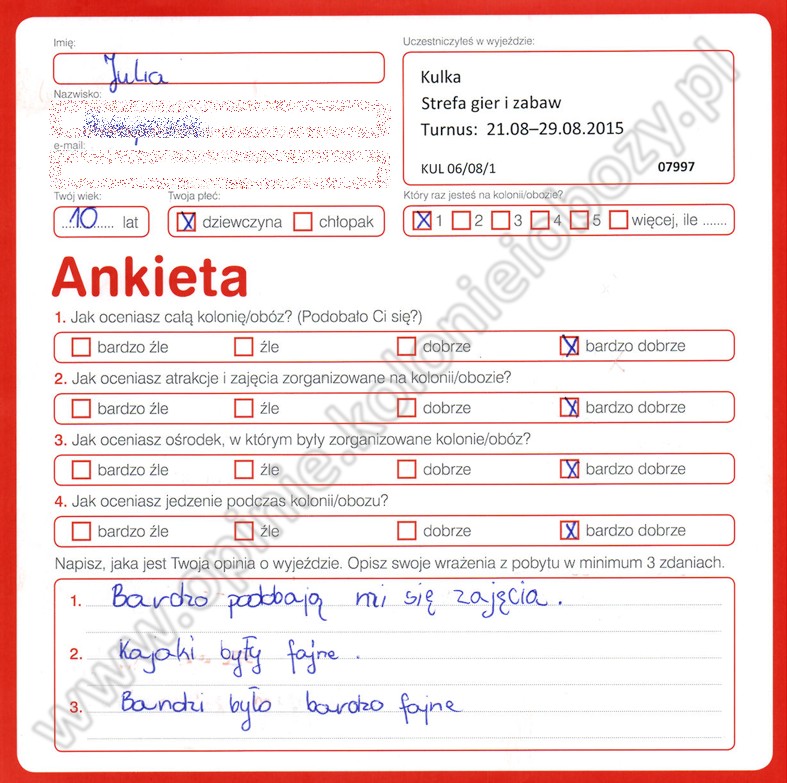 Imię:
Uczestniczyłeś w wyjeździe:
Julia
Kulka
Strefa gier i zabaw
Turnus: 21.08–29.08.2015
KUL 06/08/1 07997
Nazwisko:
e-mail:
Twój wiek:
Twoja płeć:
Który raz jesteś na kolonii/obozie?
10 lat
X dziewczyna chłopak
X 1 2 3 4 5 więcej, ile .......
Ankieta
1. Jak oceniasz całą kolonię/obóz? (Podobało Ci się?)
bardzo źle źle dobrze X bardzo dobrze
2. Jak oceniasz atrakcje i zajęcia zorganizowane na kolonii/obozie?
bardzo źle źle dobrze X bardzo dobrze
3. Jak oceniasz ośrodek, w którym były zorganizowane kolonie/obóz?
bardzo źle źle dobrze X bardzo dobrze
4. Jak oceniasz jedzenie podczas kolonii/obozu?
bardzo źle źle dobrze X bardzo dobrze
Napisz, jaka jest Twoja opinia o wyjeździe. Opisz swoje wrażenia z pobytu w minimum 3 zdaniach.
1. Bardzo podobają mi się zajęcia.
2. Kajaki były fajne.
3. Bandzi było bardzo fajne
www.opinie.kolonieiobozy.pl